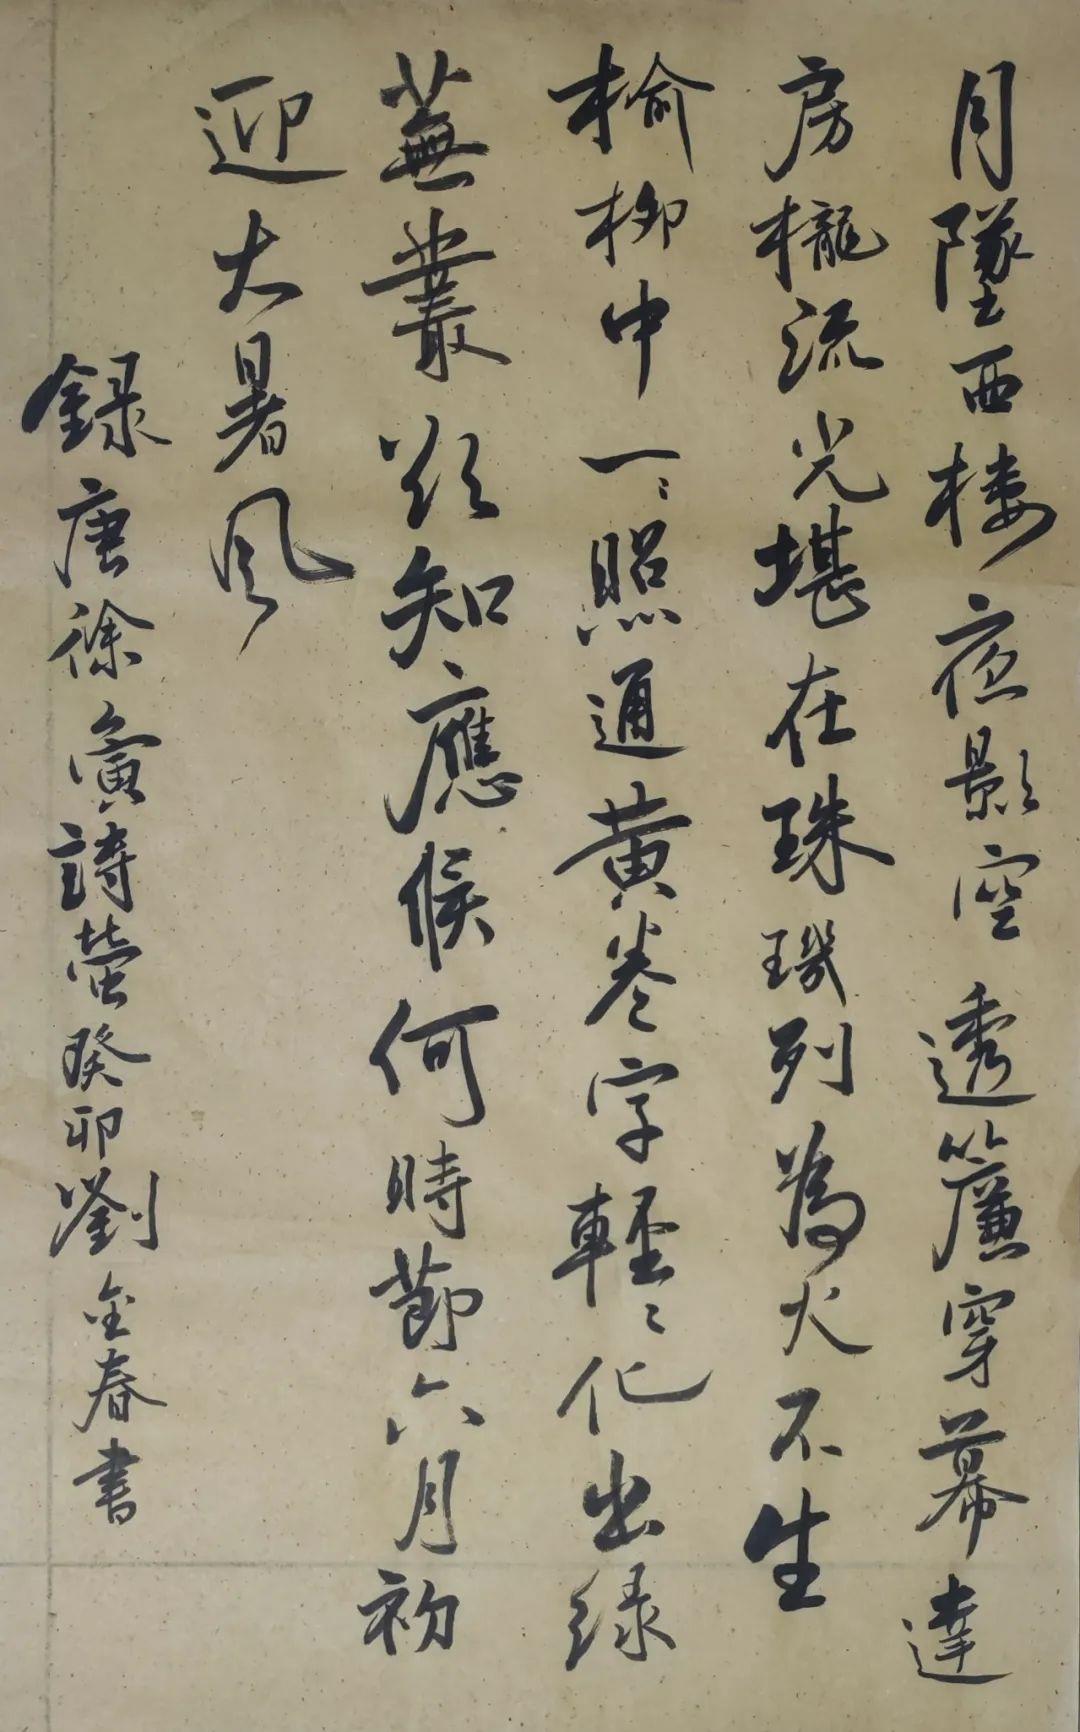 月墜西楼夜影空透簾穿幕達
房櫳流光堪在珠璣列為火不生
榆柳中一ミ照通黄卷字輕ミ化出緑
蕪叢欲知應候何時節六月初
迎大暑風
録唐徐夤詩螢癸卯劉金春書